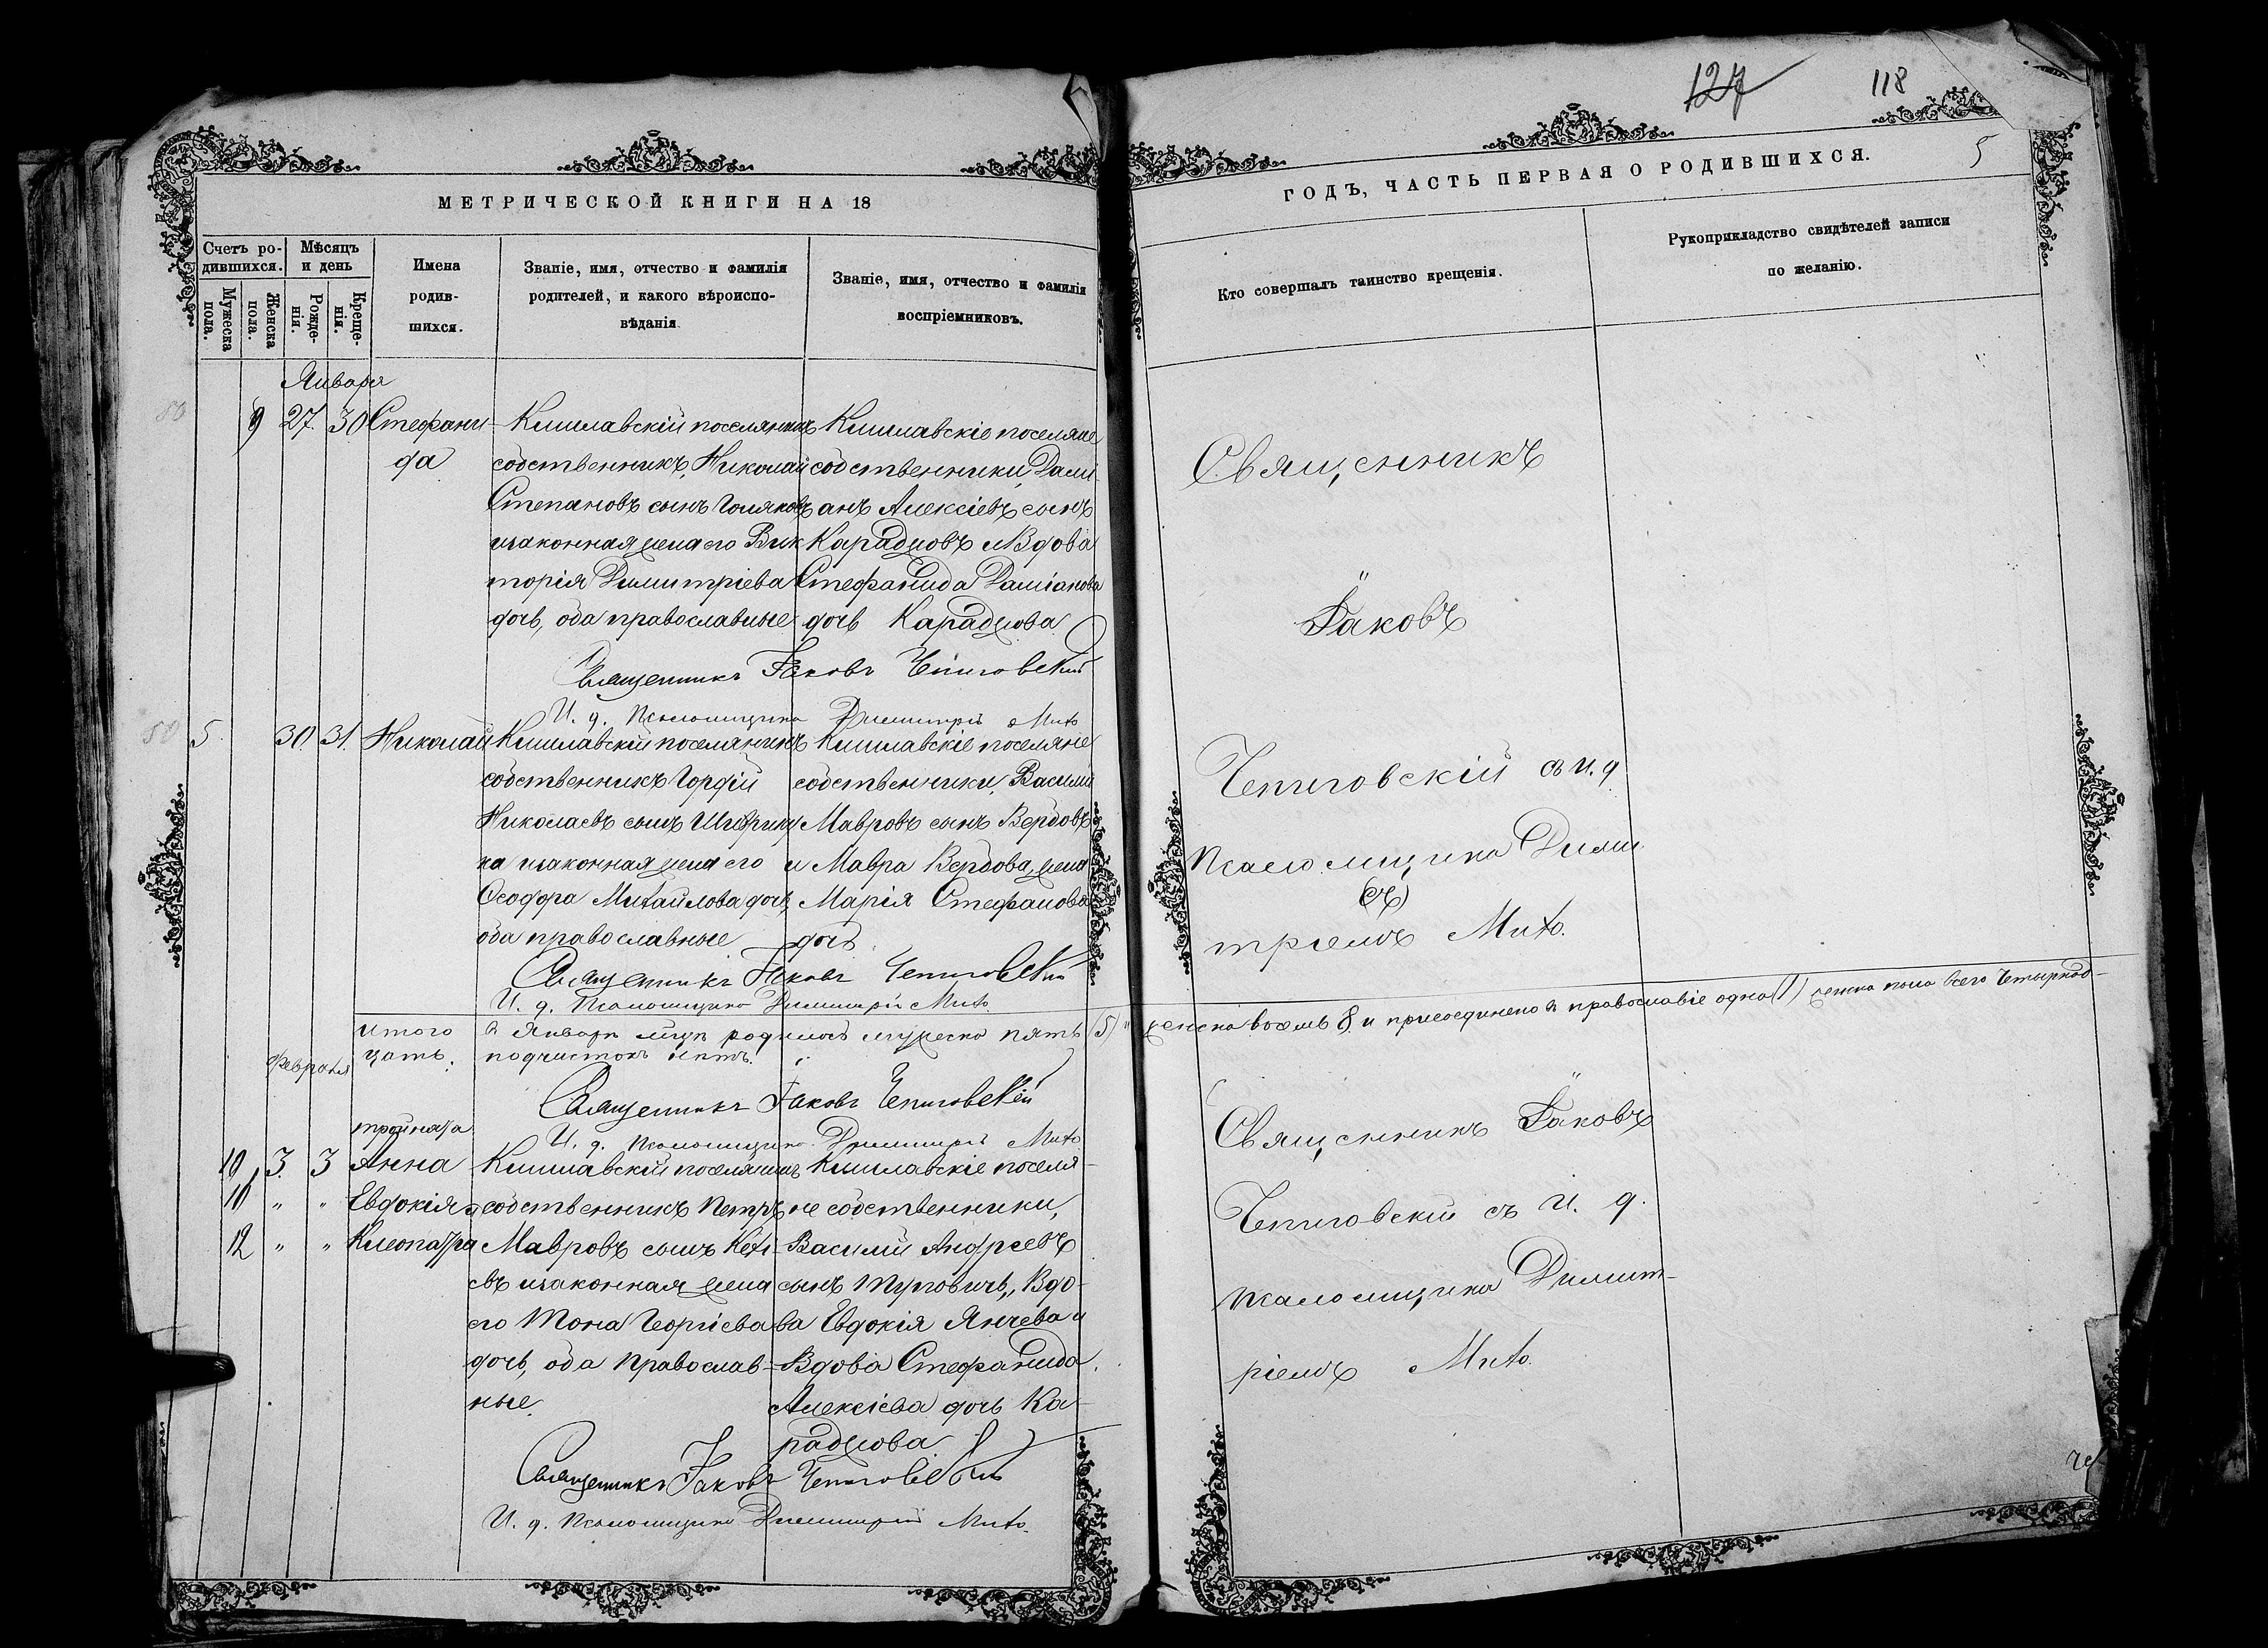 127 118
5
МЕТРИЧЕСКОЙ КНИГИ НА 18
ГОДЪ, ЧАСТЬ ПЕРВАЯ О РОДИВШИХСЯ.
Счетъ ро-
дившихся.
Мужеска
пола.
Женска
пола.
Мѣсяцъ
и день
Рожде-
нія.
Креще-
нія.
Имена
родив-
шихся.
Званіе, имя, отчество и фамилія
родителей, и какого вѣроиспо-
вѣданія
Званіе, имя, отчество и фамилія
воспріемниковъ.
Кто совершалъ таинство крещенія.
Рукоприкладство свидѣтелей записи
по желанію.
Января
9 27. 30 Стефани-
да
Кишлавскій поселянинъ
собственникъ, Николай
Степановъ сынъ Голяковъ
изаконная жена его Вик
торія Димитріева
дочь, оба православные
Кишлавскіе поселяне
собственники, Дами
анъ Алексіевъ сынъ
Караджовъ и Вдова
Стефанида Даміанова
дочь Караджова
Священникъ Іаковъ Чепиговскій
И. д. Псаломщика Димитрій Мито
Священникъ
Іаковъ
Чепиговскій съ И. д.
Псаломщика Дими
(съ)
тріемъ Мито.
5. 30 31. Николай
Кишлавскій поселянинъ
собственникъ Гордій
Николаевъ сынъ
ка изаконная жена его
Ѳеодора Михайлова дочь,
оба православные
Кишлавскіе поселяне
собственники, Василій
Мавровъ сынъ Вербовъ
и Мавра Вербова, жена
Марія Стефанова
дочь.
Священникъ Іаковъ Чепиговскій
И. д. Псаломщика Димитрій Мито.
Итого в Январѣ м-цѣ родилось мужеска пять (5) женска восемь 8. и присоединено в православіе одна (1) женска пола всего Четырнад-
цать. подчистокъ нѣтъ.
Священникъ Іаковъ Чепиговскій
И. д. Псаломщика Димитрій Мито
Февраля
тройнята
10 3. 3 Анна
11 " " Евдокія и
12 " " Клеопатра
Кишлавскій поселянинъ
собственникъ Петръ
Мавровъ сынъ
евъ изаконная жена
его Тона Георгіева
дочь, оба православ-
ные.
Кишлавскіе поселя-
не собственники,
Василій Андреевъ
сынъ Турговичъ, Вдо-
ва Евдокія Янчева и
Вдова Стефанида
Алексіева дочь Ка-
раджова.
Священникъ Іаковъ Чепиговскій
И. д. Псаломщика Димитрій Мито.
Священникъ Іаковъ
Чепиговскій съ И. д.
Псаломщика Димит-
ріемъ Мито.